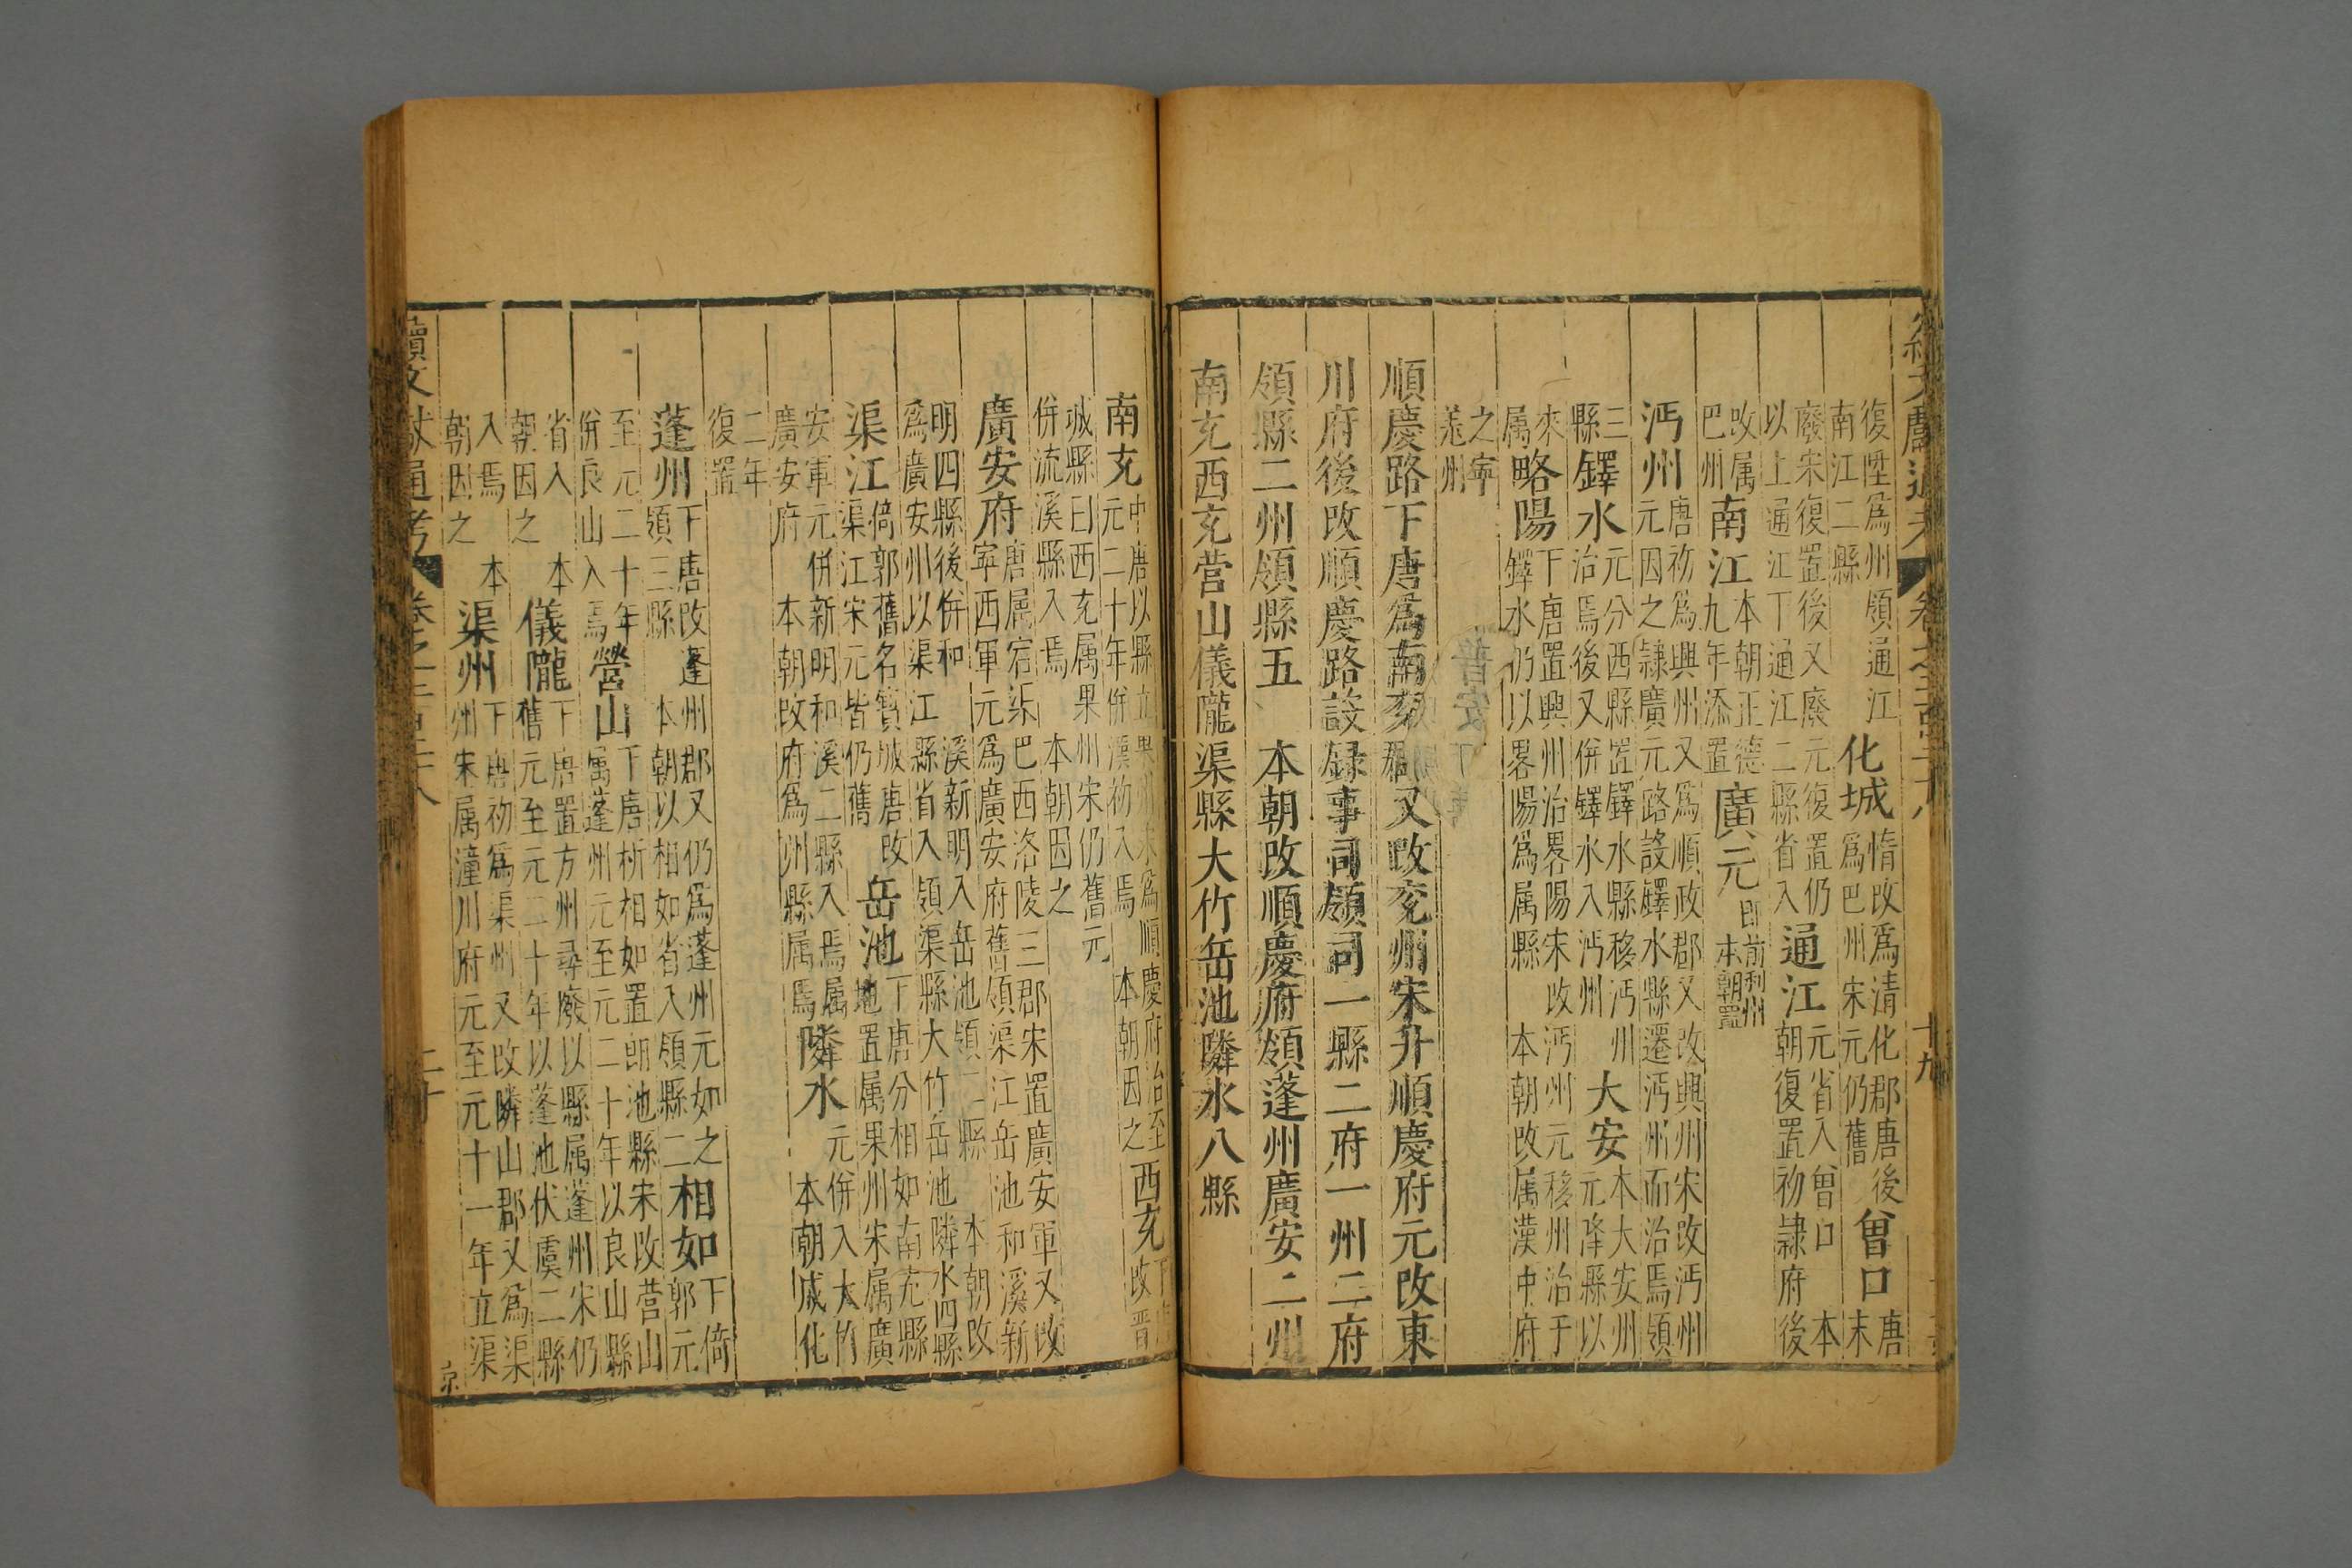 復陞爲州領通江
南江二縣
化城
隋攺爲清化郡唐後
爲巴州宋元仍舊
曾口
唐
末
廢宋復置後又廢元復置仍
以上通江下通江二縣省入
通江
元省入曾口 本
朝復置初隷府後
攺属
巴州
南江
本朝正德
九年添置
廣元
即前利州
本朝置
沔州
唐初爲興州又爲順政郡又攺興州宋攺沔州
元因之隷廣元路設鐸水縣遷沔州而治焉領
三
縣
鐸水
元分西縣置鐸水縣移沔州
治焉後又併鐸水入沔州
大安
本大安州
元降縣以
來
属
略陽
下唐置興州治畧陽宋攺沔州元移州治于
鐸水仍以畧陽爲属縣 本朝攺属漢中府
之寧
羗州
順慶路下唐爲南充郡又攺充州宋升順慶府元攺東
川府後改順慶路設録事司領司一縣二府一州二府
領縣二州領縣五 本朝改順慶府領蓬州廣安二州
南充西充营山儀隴渠縣大竹岳池隣水八縣
南充
中唐以縣立果州宋爲順慶府治至
元二十年併漢初入焉 本朝因之
西充
攺晋
城縣曰西充属果州宋仍舊元
併流溪縣入焉 本朝因之
廣安府
唐属宕渠巴西洛陵三郡宋置廣安軍又攺
寧西軍元爲廣安府舊領渠江岳池和溪新
明四縣後併和溪新明入岳池領二縣 本朝攺
爲廣安州以渠江縣省入領渠縣大竹岳池隣水四縣
渠江
倚郭舊名賨城唐攺
渠江宋元皆仍舊
岳池
下唐分相如南充縣
地置属果州宋属廣
安軍元併新明和溪二縣入焉属
廣安府 本朝攺府爲州縣属焉
隣水
元併入大竹
本朝成化
二年
復置
蓬州
下唐攺蓬州郡又仍爲蓬州元如之
領三縣 本朝以相如省入領縣二
相如
下倚
郭元
至元二十年
併良山入焉
營山
下唐析相如置朗池縣宋攺营山
属蓬州元至元二十年以良山縣
省入 本
朝因之
儀隴
下唐置方州尋廢以縣属蓬州宋仍
舊元至元二十年以蓬池伏虞二縣
入焉 本
朝因之
渠州
下唐初爲渠州又攺隣山郡又爲渠
州宋属潼川府元至元十一年立渠
續文献通考
二十